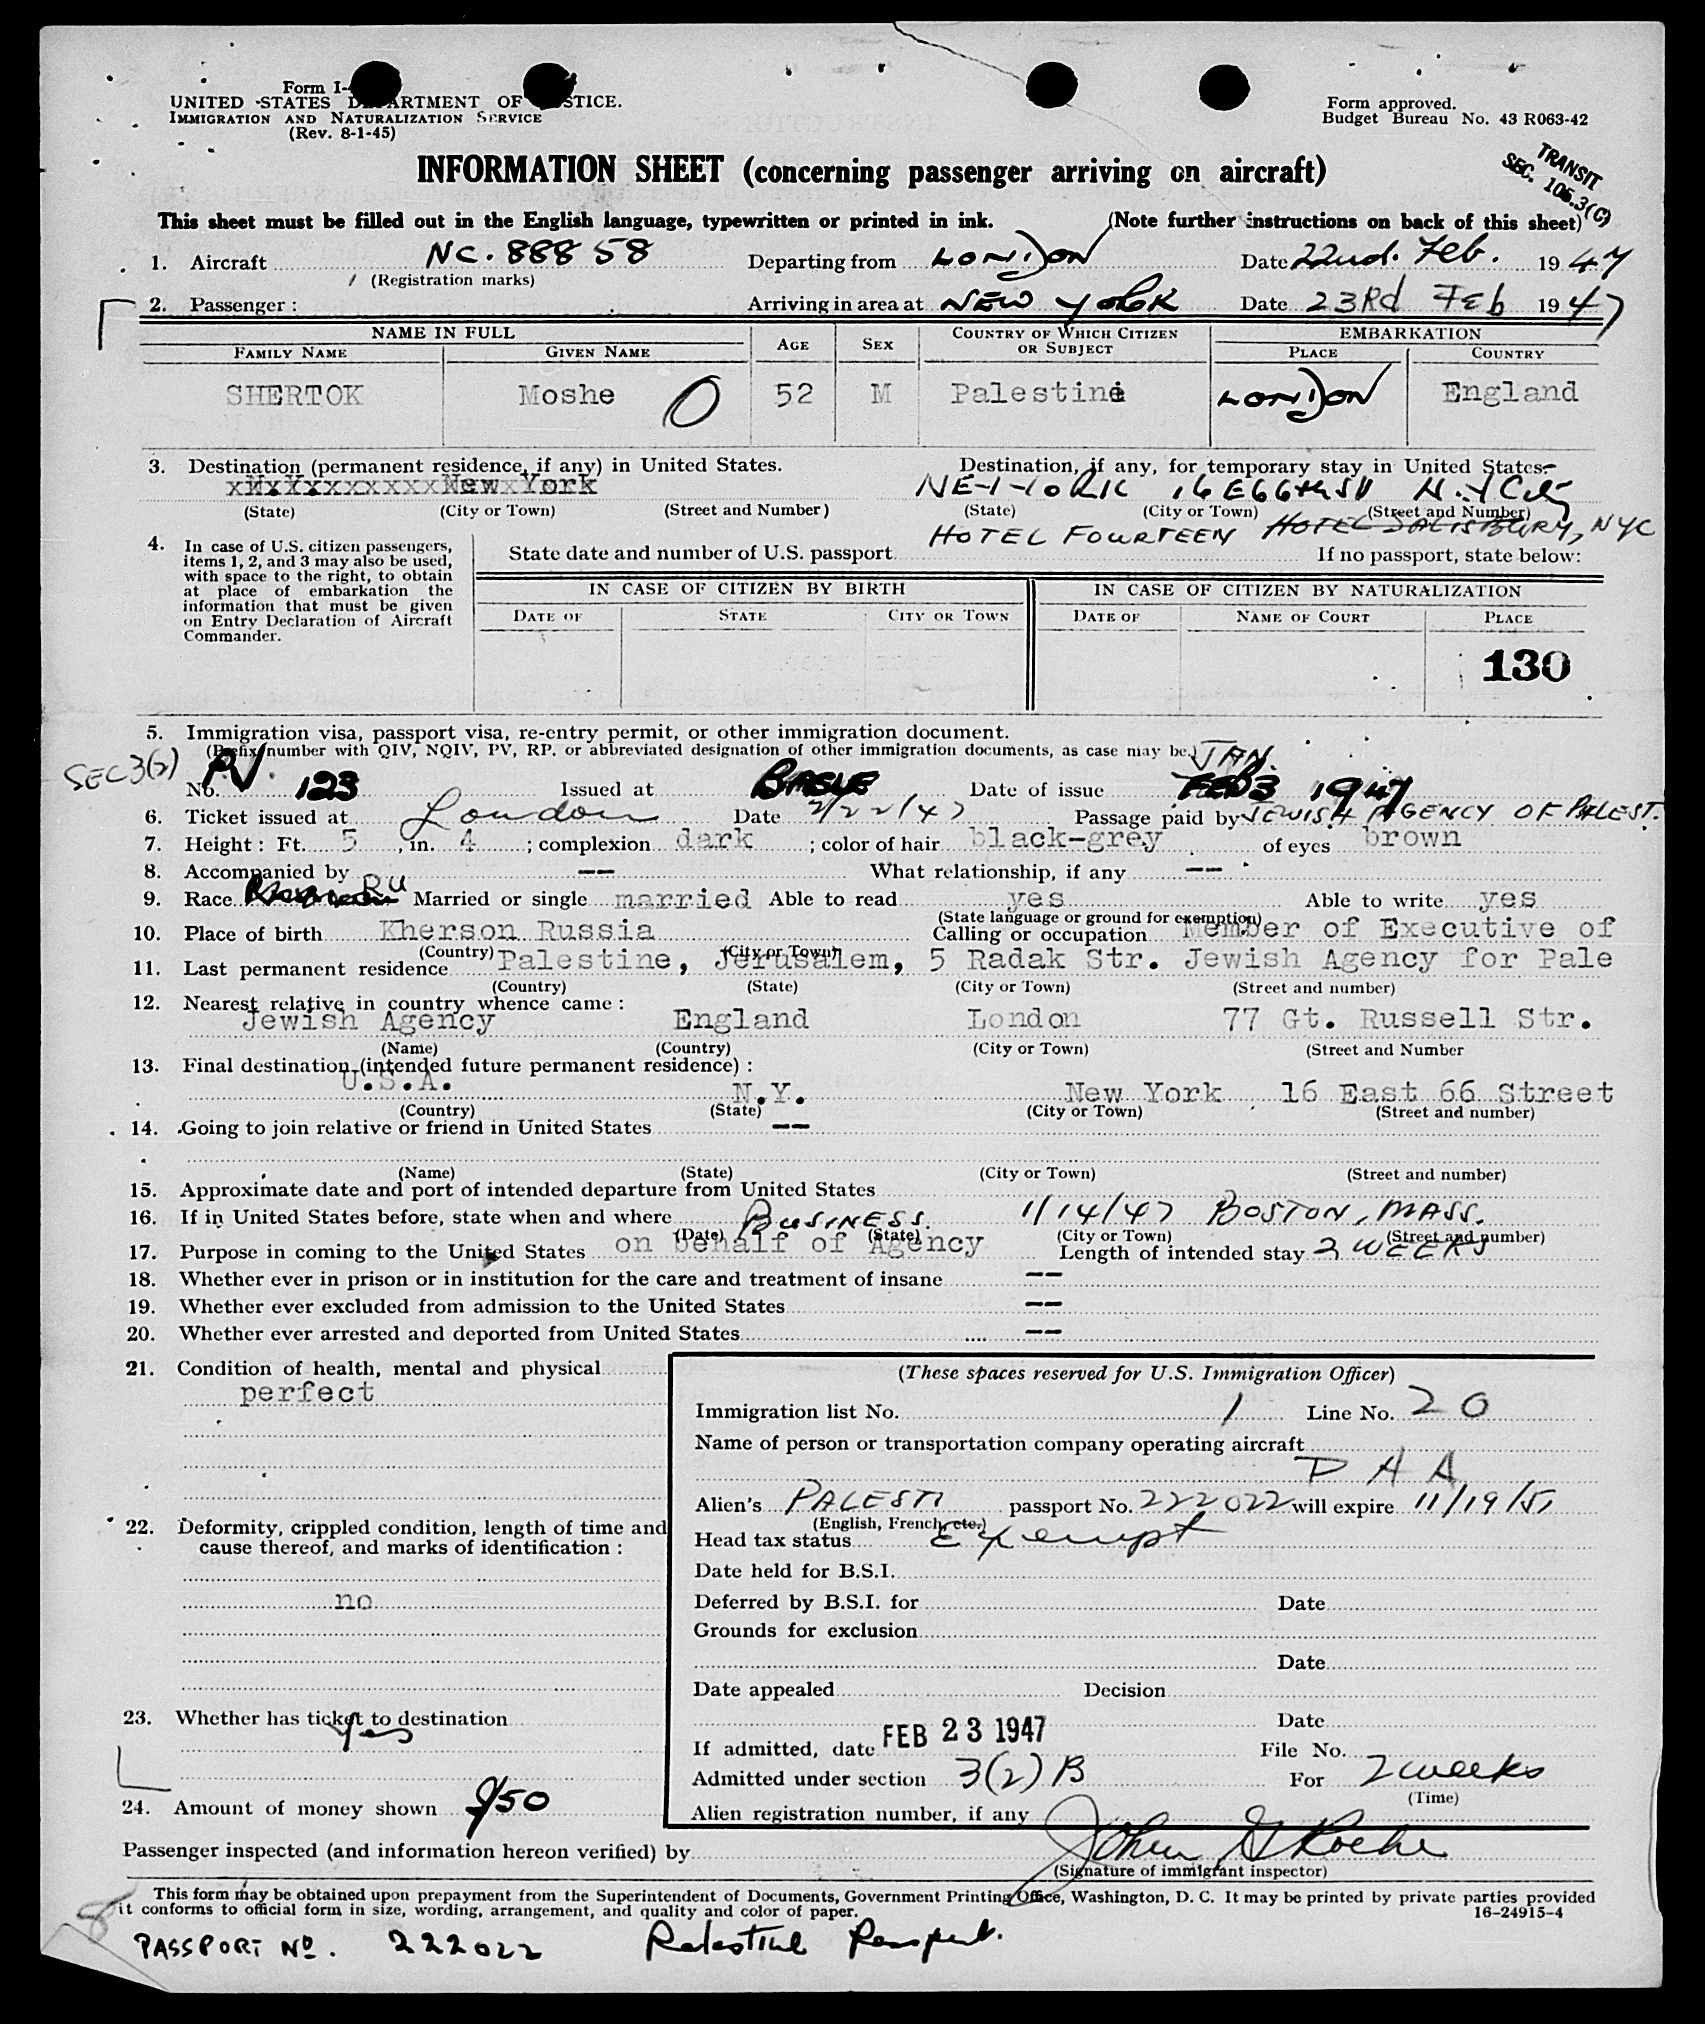 Form I-
UNITED STATES DEPARTMENT OF JUSTICE.
IMMIGRATION AND NATURALIZATION SERVICE
(Rev. 8-1-45)
Form approved.
Budget Bureau No. 43 R063-42
TRANSIT
SEC. 105.3(C)
INFORMATION SHEET (concerning passenger arriving on aircraft)
This sheet must be filled out in the English language, typewritten or printed in ink. (Note further instructions on back of this sheet)
1. Aircraft NC. 88858 Departing from LONDON Date 22nd. Feb. 1947
(Registration marks)
2. Passenger: Arriving in area at NEW YORK Date 23Rd Feb 1947
NAME IN FULL AGE SEX COUNTRY OF WHICH CITIZEN OR SUBJECT EMBARKATION
FAMILY NAME GIVEN NAME PLACE COUNTRY
SHERTOK Moshe O 52 M Palestine LONDON England
3. Destination (permanent residence, if any) in United States. Destination, if any, for temporary stay in United States.
New York 16 E 66th St N.Y City
(State) (City or Town) (Street and Number) (State) (City or Town) (Street and Number)
HOTEL FOURTEEN HOTEL SALISBURY, NYC
4. In case of U.S. citizen passengers, items 1, 2, and 3 may also be used, with space to the right, to obtain at place of embarkation the information that must be given on Entry Declaration of Aircraft Commander.
State date and number of U.S. passport If no passport, state below:
IN CASE OF CITIZEN BY BIRTH IN CASE OF CITIZEN BY NATURALIZATION
DATE OF STATE CITY OR TOWN DATE OF NAME OF COURT PLACE
130
5. Immigration visa, passport visa, re-entry permit, or other immigration document.
(Prefix number with QIV, NQIV, PV, RP. or abbreviated designation of other immigration documents, as case may be.) JAN.
SEC 3(2) PV.
No. 123 Issued at BASLE Date of issue 1947
6. Ticket issued at London Date 2/22/47 Passage paid by JEWISH AGENCY OF PALEST.
7. Height: Ft. 5, in. 4; complexion dark; color of hair black-grey of eyes brown
8. Accompanied by -- What relationship, if any --
9. Race RU Married or single married Able to read yes Able to write yes
(State language or ground for exemption)
10. Place of birth Kherson Russia Calling or occupation Member of Executive of
(Country) (City or Town)
11. Last permanent residence Palestine, Jerusalem, 5 Radak Str. Jewish Agency for Pale
(Country) (State) (City or Town) (Street and number)
12. Nearest relative in country whence came:
Jewish Agency England London 77 Gt. Russell Str.
(Name) (Country) (City or Town) (Street and Number
13. Final destination (intended future permanent residence):
U.S.A. N.Y. New York 16 East 66 Street
(Country) (State) (City or Town) (Street and number)
14. Going to join relative or friend in United States --
(Name) (State) (City or Town) (Street and number)
15. Approximate date and port of intended departure from United States
16. If in United States before, state when and where BUSINESS. 1/14/47 BOSTON, MASS.
(Date) (State) (City or Town) (Street and number)
17. Purpose in coming to the United States on behalf of Agency Length of intended stay 2 WEEKS
18. Whether ever in prison or in institution for the care and treatment of insane --
19. Whether ever excluded from admission to the United States --
20. Whether ever arrested and deported from United States --
21. Condition of health, mental and physical
perfect
22. Deformity, crippled condition, length of time and cause thereof, and marks of identification:
no
23. Whether has ticket to destination
Yes
24. Amount of money shown $50
(These spaces reserved for U.S. Immigration Officer)
Immigration list No. 1 Line No. 20
Name of person or transportation company operating aircraft
P A A
Alien's PALESTI passport No. 222022 will expire 11/19/51
(English, French, etc.)
Head tax status Exempt
Date held for B.S.I.
Deferred by B.S.I. for Date
Grounds for exclusion
Date
Date appealed Decision
Date
If admitted, date FEB 23 1947 File No.
Admitted under section 3(2) B For 2 weeks
(Time)
Alien registration number, if any
Passenger inspected (and information hereon verified) by John G Roche
(Signature of immigrant inspector)
This form may be obtained upon prepayment from the Superintendent of Documents, Government Printing Office, Washington, D. C. It may be printed by private parties provided
it conforms to official form in size, wording, arrangement, and quality and color of paper. 16-24915-4
8
PASSPORT No. 222022 Palestine Passport.